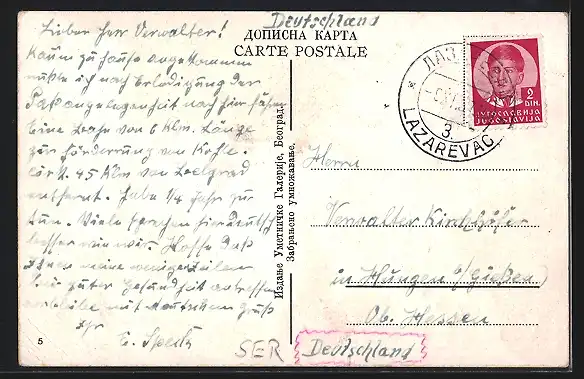 Deutschland
ДОПИСНА КАРТА
CARTE POSTALE
Lieber Herr Verwalter!
Kaum zu Hause angekommen
mußte ich nach Erledigung der
Paßangelegenheit nach hier fahren
Eine Bahn von 6 Klm. Länge
zur Förderung von Kohle.
ca. 45 Klm von Belgrad
entfernt. Habe 1/4 Jahr zu
tun. Viele sprechen hier deutsch
besser wie wir. Hoffe daß
meine wenigen Zeilen
bei guter Gesundheit antreffen
verbleibe mit deutschem Gruß
Ihr
E.
5
SER
Издање Уметничке Галерије, Београд.
Забрањено умножавање.
ЛАЗ
LAZAREVAC
3
2
DIN.
ЈУГОСЛАВИЈА
JUGOSLAVIJA
Herrn
Verwalter Kirchhöfer
in Hungen b/ Gießen
Ob. Hessen
Deutschland